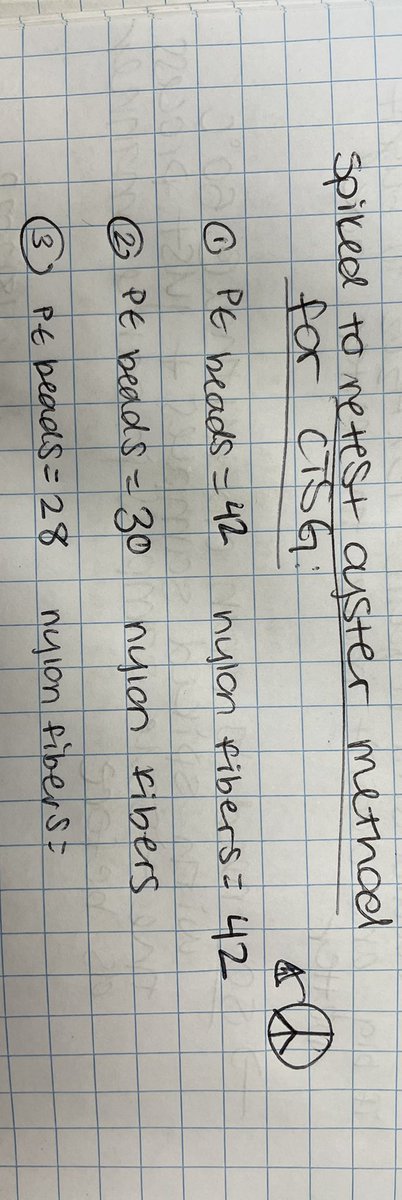 spiked to retest oyster method
for CTSG:
① PE beads = 42 nylon fibers = 42
② PE beads = 30 nylon fibers
③ PE beads = 28 nylon fibers =